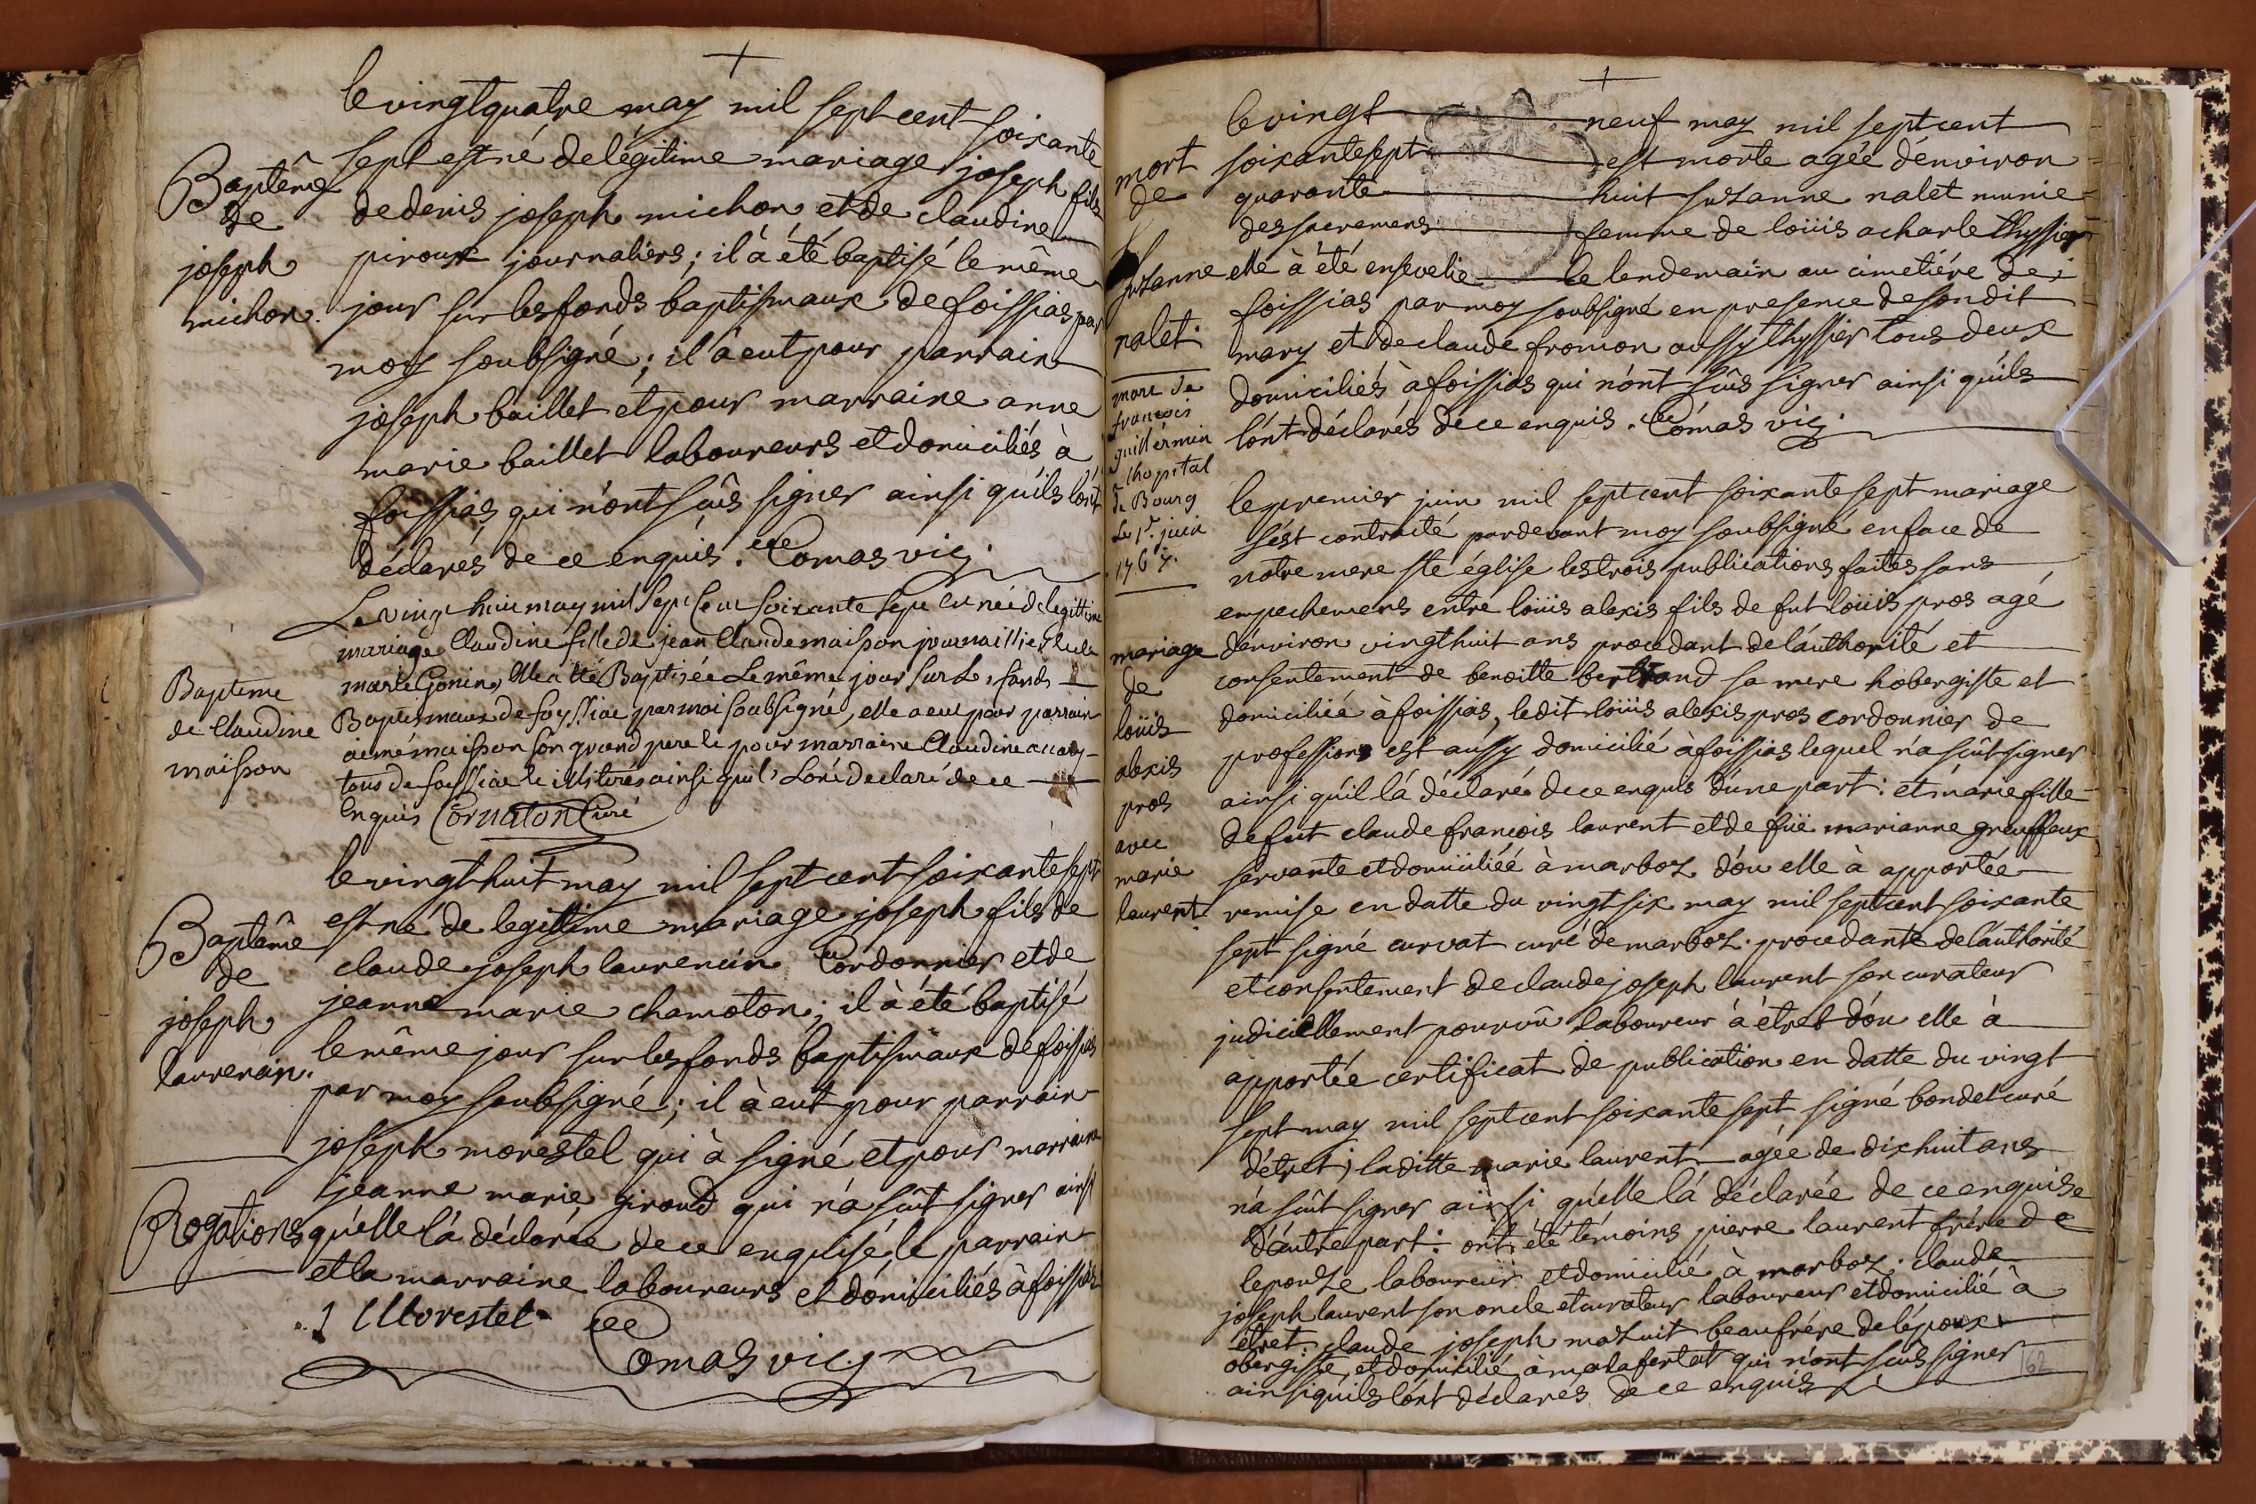 le vingtquatre may mil sept cent soixante
sept est né de légitime mariage joseph fils
de denis joseph michon et de claudine
piroux journaliers ; il à été baptisé le même
jour sur les fonds baptismaux de foissias par
moy soubsigné ; il à eut pour parrain
joseph baillet et pour marraine anne
marie baillet laboureurs et domiciliés à
foissias qui n'ont sûs signer ainsi quils l'ont
déclarés de ce enquis . Comas vic.
Baptême
de
joseph
michon.
Le vingt huit may mil sept cent soixante sept est née de legittime
mariage Claudine fille de jean Claude maisson journaillier et de
marie Gonin, elle a été Baptisée Le même jour sur Les fonds
Baptismaux de foyssiae par moi soubsigné, elle a eut pour parrain
aimé maisson son grand pere et pour marraine Claudine
tous de foissiae et illiterés ainsi quils L'ont declaré de ce
Enquis Cornaton Curé
Bapteme
de Claudine
maisson
le vingthuit may mil sept cent soixante sept
est né de legittime mariage joseph fils de
claude joseph laurencin Cordonnier et de
jeanne marie chamoton ; il à été baptisé
le même jour sur les fonds baptismaux de foissias
par moy soubsigné ; il à eut pour parrain
joseph morestel qui à signé et pour marraine
jeanne marie giroud qui n'a sût signer ainsi
qu'elle l'à déclarée de ce enquise, le parrain
et la marraine laboureurs et domiciliés à foissias
J Morestel
Comas vic.
Baptême
de
joseph
laurencin.
Rogations
le vingt neuf may mil sept cent
soixante sept est morte agée d'environ
quarante huit suzanne nalet munie
des sacremens femme de loüis acharle thyssier
elle à été ensevelie le lendemain au cimetiére de
foissias par moy soubsigné en presence de son dit
mary et de claude fromon aussy thyssier tous deux
domiciliés à foissias qui n'ont sûs signer ainsi quils
l'ont déclarés de ce enquis . Comas vic.
mort
de
suzanne
nalet.
mort de
françois
guillermin
a lhopital
de Bourg
Le 1r. juin
1767.
le premier juin mil sept cent soixante sept mariage
s'est contracté pardevant moy soubsigné en face de
notre mere ste église les trois publications faites sans
empechemens entre loüis alexis fils de fut loüis pros agé
d'environ vingthuit ans procedant de l'authorité et
consentement de benoitte bertrand sa mere hobergiste et
domiciliée à foissias, ledit loüis alexis pros cordonnier de
profession est aussy domicilié à foissias lequel n'a sût signer
ainsi qu'il l'à déclaré de ce enquis d'une part : et marie fille
de fut claude françois laurent et de füe marianne greuffeux
servante et domiciliéé à marboz d'ou elle à apportée
remise en datte du vingt six may mil sept cent soixante
sept signé curvat curé de marboz. procedante de l'authorité
et consentement de claude joseph laurent son curateur
judiciellement pourvû laboureur à étret d'ou elle à
apportée certificat de publication en datte du vingt
sept may mil sept cent soixante sept signé bondet curé
d'étret ; laditte marie laurent agée de dixhuit ans
n'a sût signer ainsi qu'elle l'à déclarée de ce enquise
d'autre part : ont été témoins pierre laurent frére de
l'epouse laboureur et domicilié à marboz. claude
joseph laurent son oncle et curateur laboureur et domicilié à
étret. claude joseph mazuit beaufrére de l'époux
obergiste et domicilié à malafertat qui n'ont sûs signer
ainsi quils l'ont déclarés de ce enquis
mariage
de
loüis
alexis
pros
avec
marie
laurent.
162